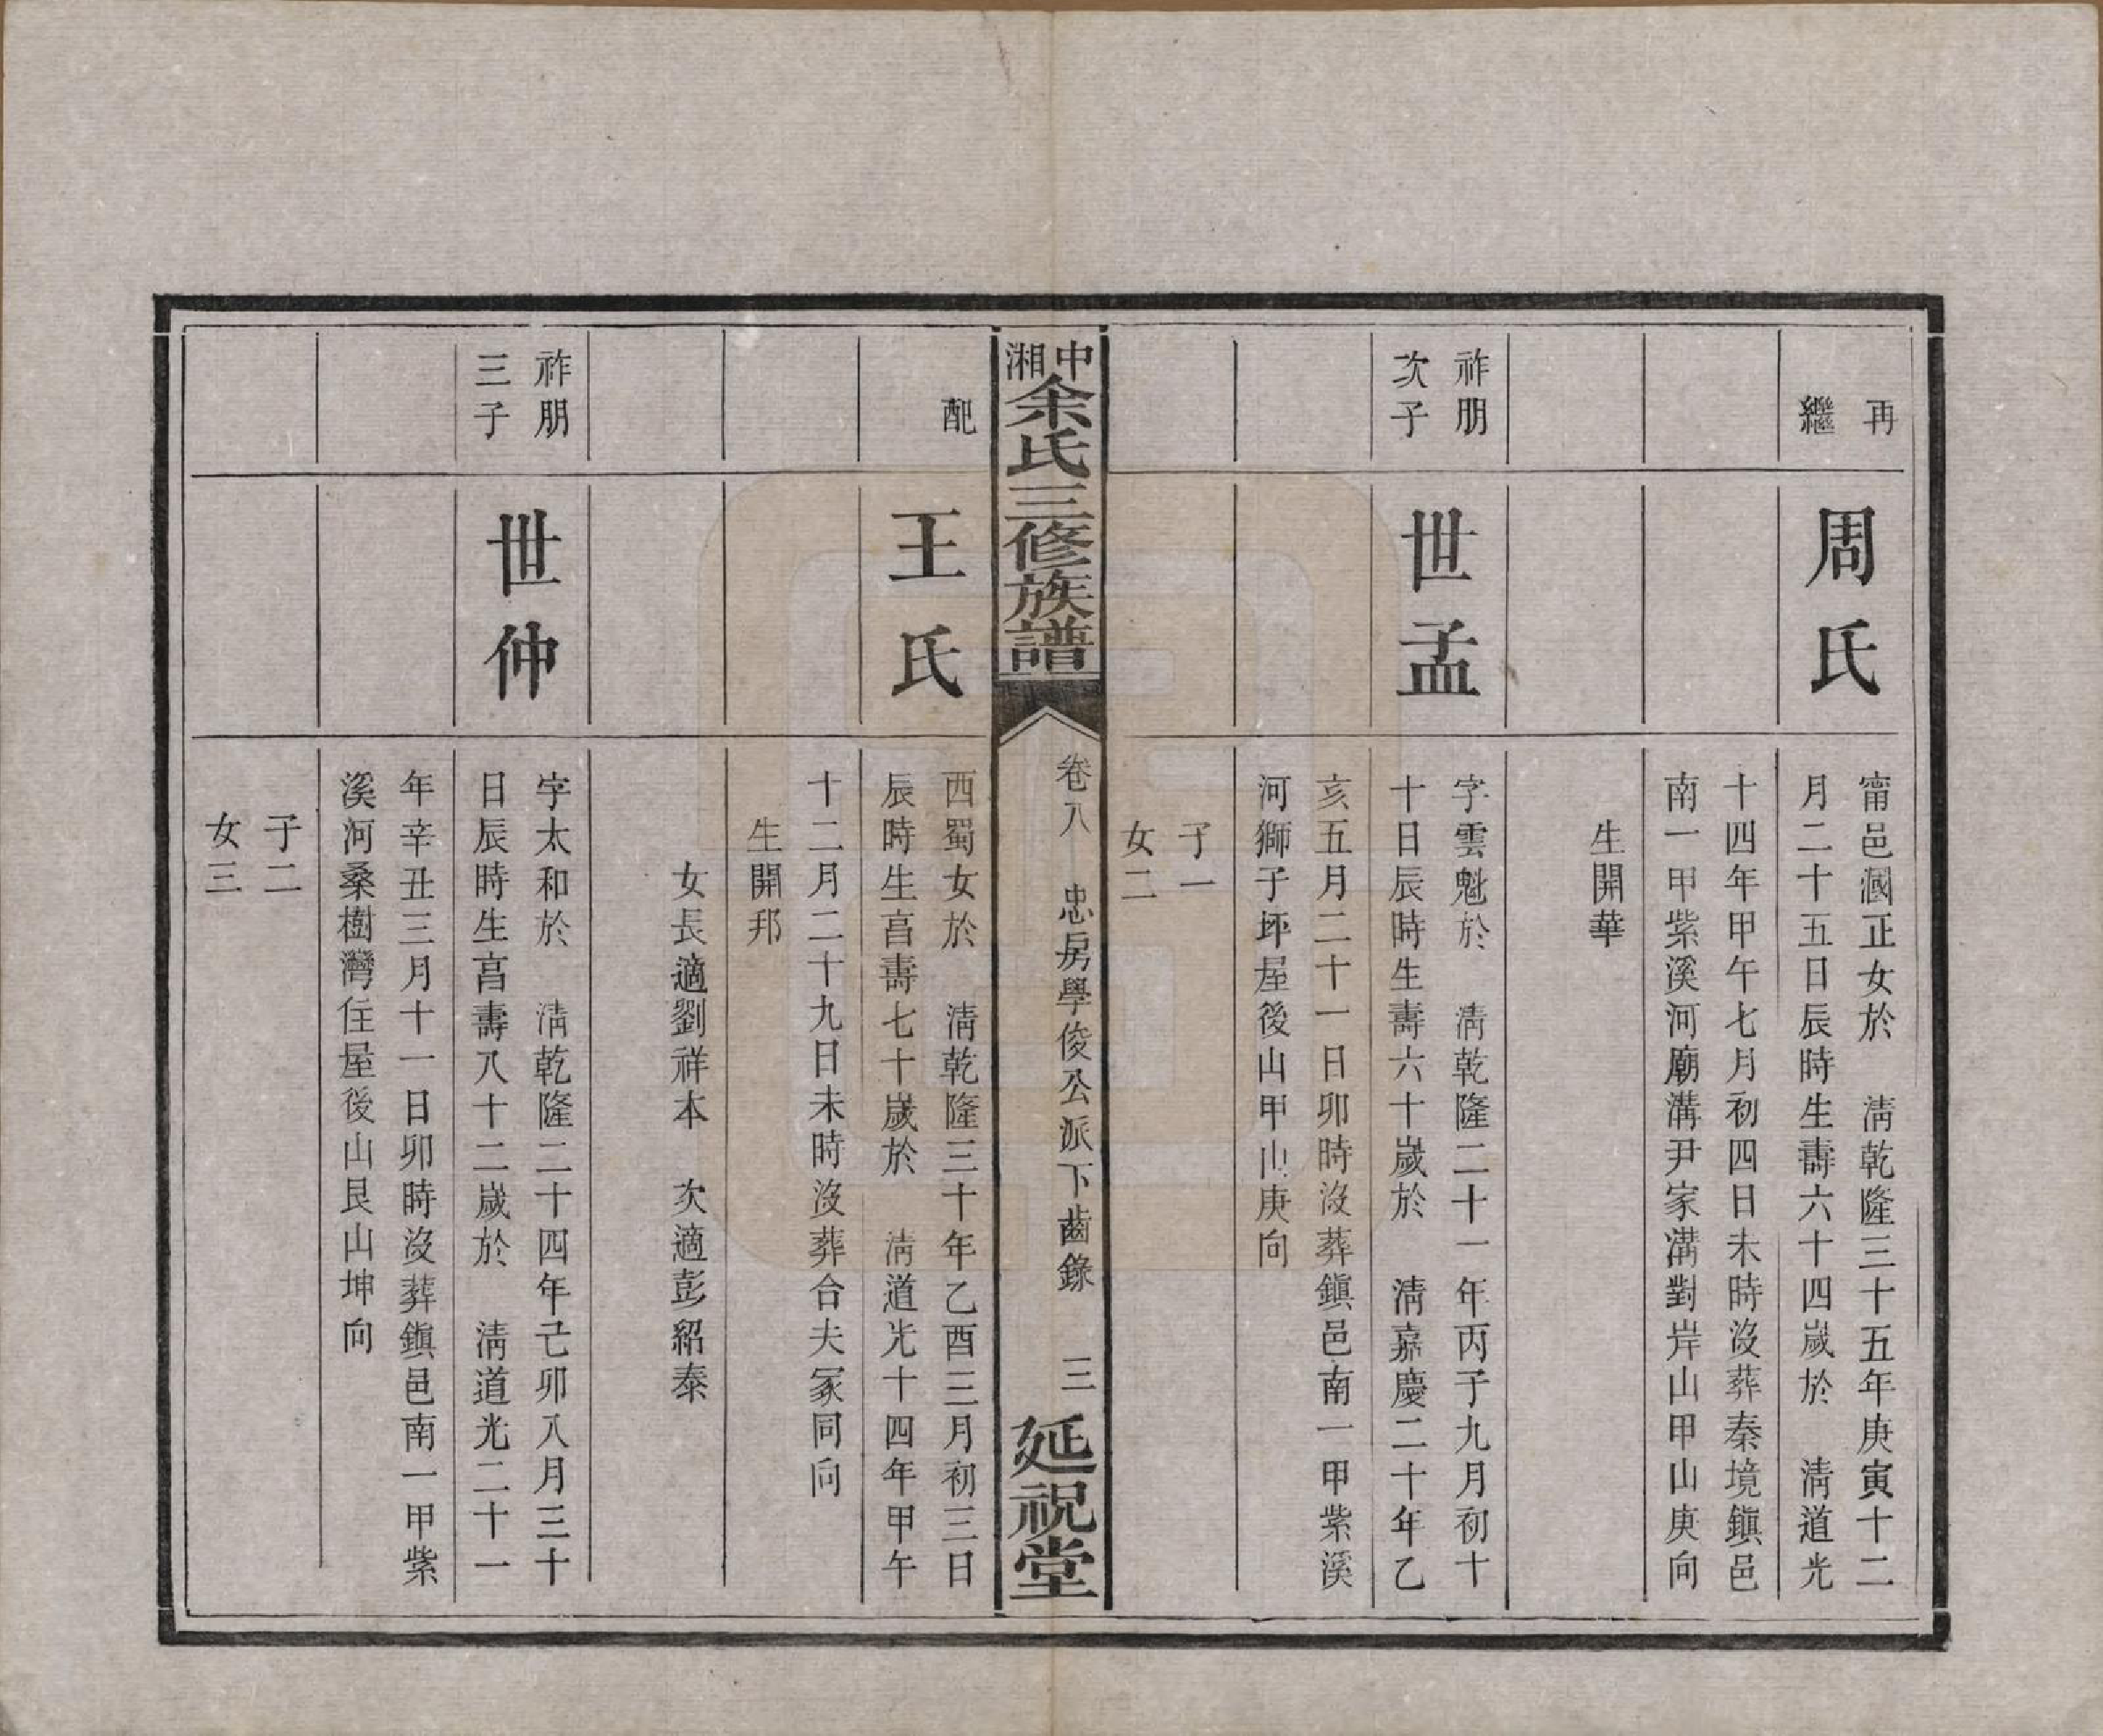 再
繼
周氏
甯邑溷正女於　清乾隆三十五年庚寅十二
月二十五日辰時生壽六十四歲於　清道光
十四年甲午七月初四日未時沒葬秦境鎭邑
南一甲紫溪河廟溝尹家溝對岸山甲山庚向
生開華
祚朋
次子
世孟
字雲魁於　清乾隆二十一年丙子九月初十
十日辰時生壽六十歲於　清嘉慶二十年乙
亥五月二十一日卯時沒葬鎭邑南一甲紫溪
河獅子坪屋後山甲山庚向
子一
女二
中湘余氏三修族譜
卷八　忠房學俊公派下齒錄　三
延祝堂
配
王氏
西蜀女於　清乾隆三十年乙酉三月初三日
辰時生亯壽七十歲於　清道光十四年甲午
十二月二十九日未時沒葬合夫冢同向
生開邦
女長適劉祥本　次適彭紹泰
祚朋
三子
世仲
字太和於　清乾隆二十四年己卯八月三十
日辰時生亯壽八十二歲於　清道光二十一
年辛丑三月十一日卯時沒葬鎭邑南一甲紫
溪河桑樹灣住屋後山艮山坤向
子二
女三